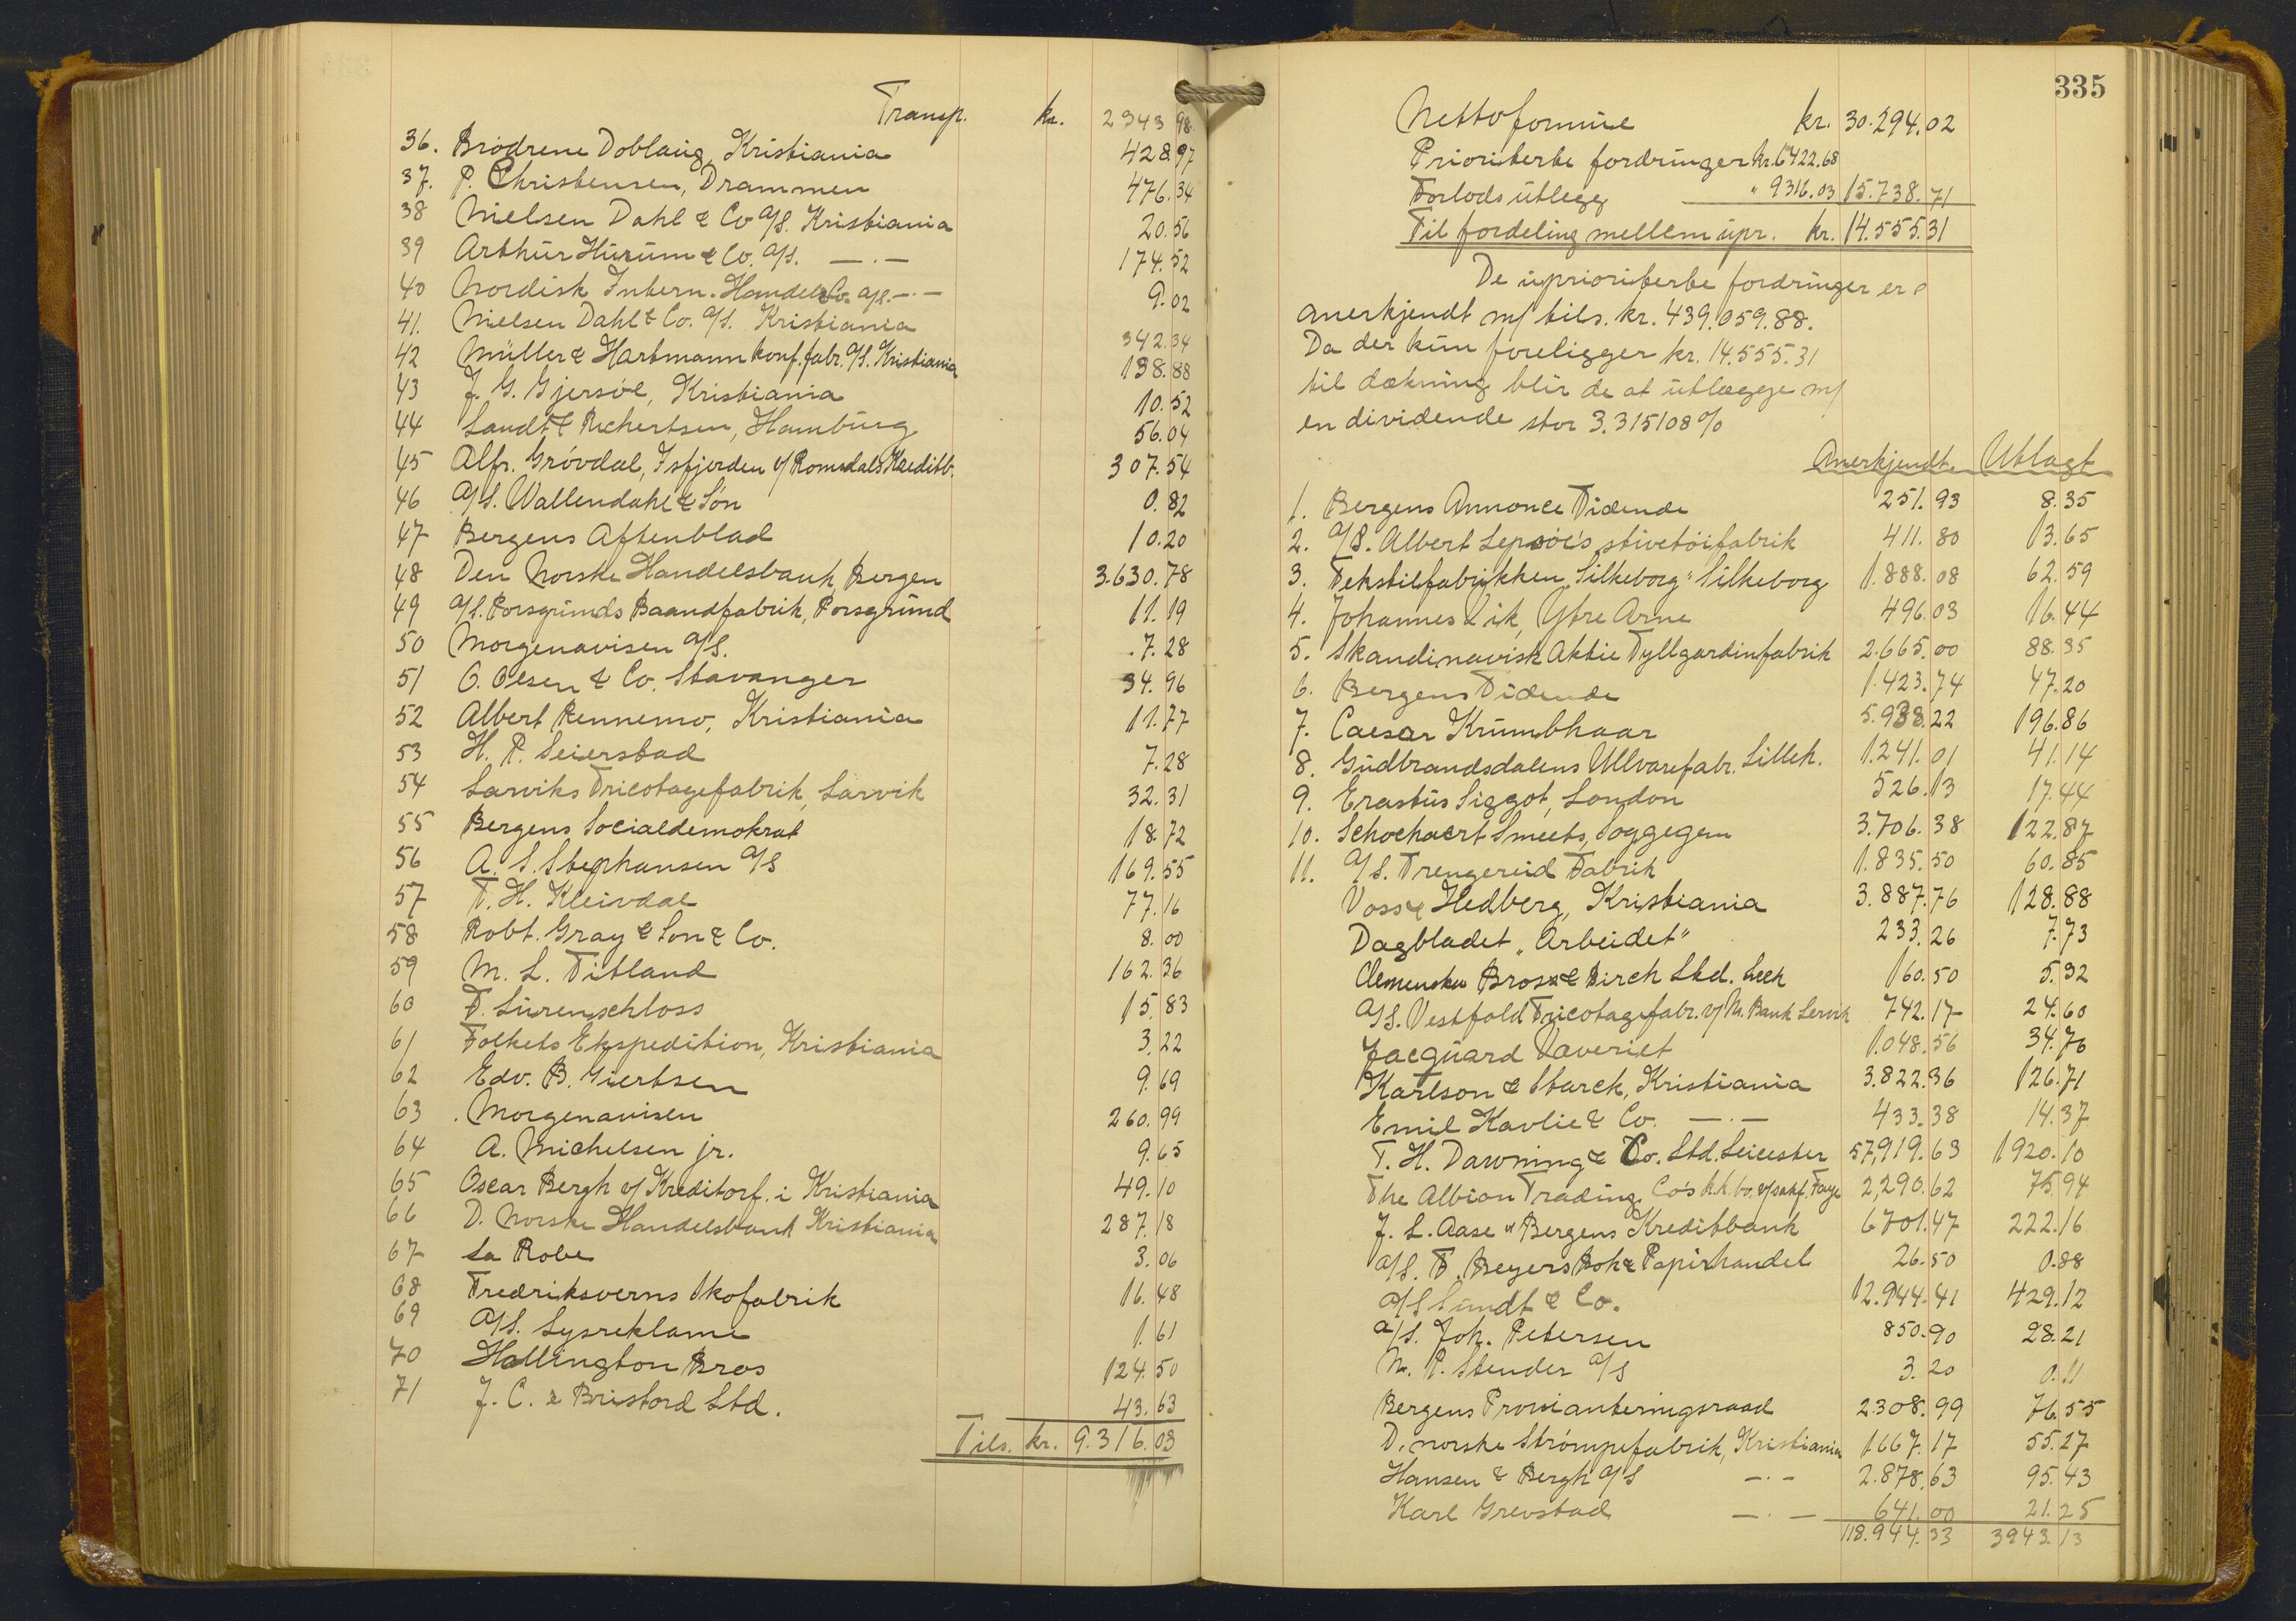 Transp. kr. 2343 98
36. Brødrene Dobloug, Kristiania 428.97
37. P. Christensen, Drammen 476.34
38 Nielsen Dahl & Co A/S. Kristiania 20.56
39 Arthur Hurum & Co. A/S. —.— 174.52
40 Nordisk Intern. Handels Co. A/S. —.— 9.02
41. Nielsen Dahl & Co. A/S. Kristiania 342.34
42 Müller & Hartmann konf.fabr. A/S. Kristiania 138.88
43 J. G. Gjersøe, Kristiania 10.52
44 Landt & Richertsen, Hamburg 56.04
45 Alfr. Grøvdal, Isfjorden v/ Romsdals Kreditb. 307.54
46 A/S. Wallendahl & Søn 0.82
47 Bergens Aftenblad 10.20
48 Den Norske Handelsbank, Bergen 3.630.78
49 A/S. Porsgrunds Baandfabrik, Porsgrund 11.19
50 Morgenavisen A/S. 7.28
51 O. Olsen & Co. Stavanger 34.96
52 Albert Rennemo, Kristiania 11.77
53 H. P. Seierstad 7.28
54 Larviks Tricotagefabrik, Larvik 32.31
55 Bergens Socialdemokrat 18.72
56 A. S. Stephansen A/S 169.55
57 T. H. Kleivdal 77.16
58 Robt. Gray & Son & Co. 8.00
59 M. L. Titland 162.36
60 T. Lürenschloss 15.83
61 Folkets Ekspedition, Kristiania 3.22
62 Edv. B. Giertsen 9.69
63 Morgenavisen 260.99
64 A. Michelsen jr. 9.65
65 Oscar Bergh v/ Kreditorf. i Kristiania 49.10
66 D. Norske Handelsbank Kristiania 287.18
67 La Robe 3.06
68 Fredriksverns Skofabrik 16.48
69 A/S. Lysreklame 1.61
70 Hollington Bros 124.50
71 J. C. & Bristord Ltd. 43.63
Tils. kr. 9.316.03
335
Nettoformue kr. 30.294.02
Prioriterte fordringer kr. 6422.68
Forlods utlegg " 9316.03 15.738.71
Til fordeling mellem upr. kr. 14.555.31
De uprioriterte fordringer er
anerkjendt m/ tils. kr. 439.059.88.
Da der kun foreligger kr. 14.555.31
til dækning blir de at utlægge m/
en dividende stor 3.315108 %
Anerkjendt Utlagt
1. Bergens Annonce Tidende 251.93 8.35
2. A/S. Albert Lepsøe's stivetøifabrik 411.80 13.65
3. Tekstilfabrikken "Silkeborg" Silkeborg 1.888.08 62.59
4. Johannes Vik, Ytre Arne 496.03 16.44
5. Skandinavisk Aktie Tyllgardinfabrik 2.665.00 88.35
6. Bergens Tidende 1.423.74 47.20
7. Caesar Krumbhaar 5.938.22 196.86
8. Gudbrandsdalens Ullvarefabr. Lilleh. 1.241.01 41.14
9. Erastus Siggot, London 526.13 17.44
10. Schochaert Smeets, Soggegem 3.706.38 122.87
11. A/S. Trengereid Fabrik 1.835.50 60.85
Voss & Hedberg, Kristiania 3.887.76 128.88
Dagbladet "Arbeidet" 233.26 7.73
Bros & Birch Ltd. Leek 160.50 5.32
A/S. Vestfold Tricotagefabr. v/ N. Bank Larvik 742.17 24.60
Jacquard Væveriet 1.048.56 34.76
Karlson & Starck, Kristiania 3.822.36 126.71
Emil Kavlie & Co. —.— 433.38 14.37
T. H. Dawning & Co. Ltd. Leicester 57,919.63 1920.10
The Albion Trading Co's k.k.bo. v/ sakf. Faye 2,290.62 75.94
J. L. Aase v/ Bergens Kreditbank 6701.47 222.16
A/S. F. Beyers Bok & Papirhandel 26.50 0.88
A/S Sundt & Co. 12.944.41 429.12
A/S. Joh. Petersen 850.90 28.21
N. P. Stender A/S 3.20 0.11
Bergens Provianteringsraad 2.308.99 76.55
D. norske Strømpefabrik, Kristiania 1.667.17 55.27
Hansen & Bergh A/S —.— 2.878.63 95.43
Karl Grevstad —.— 641.00 21.25
118.944.33 3943 13